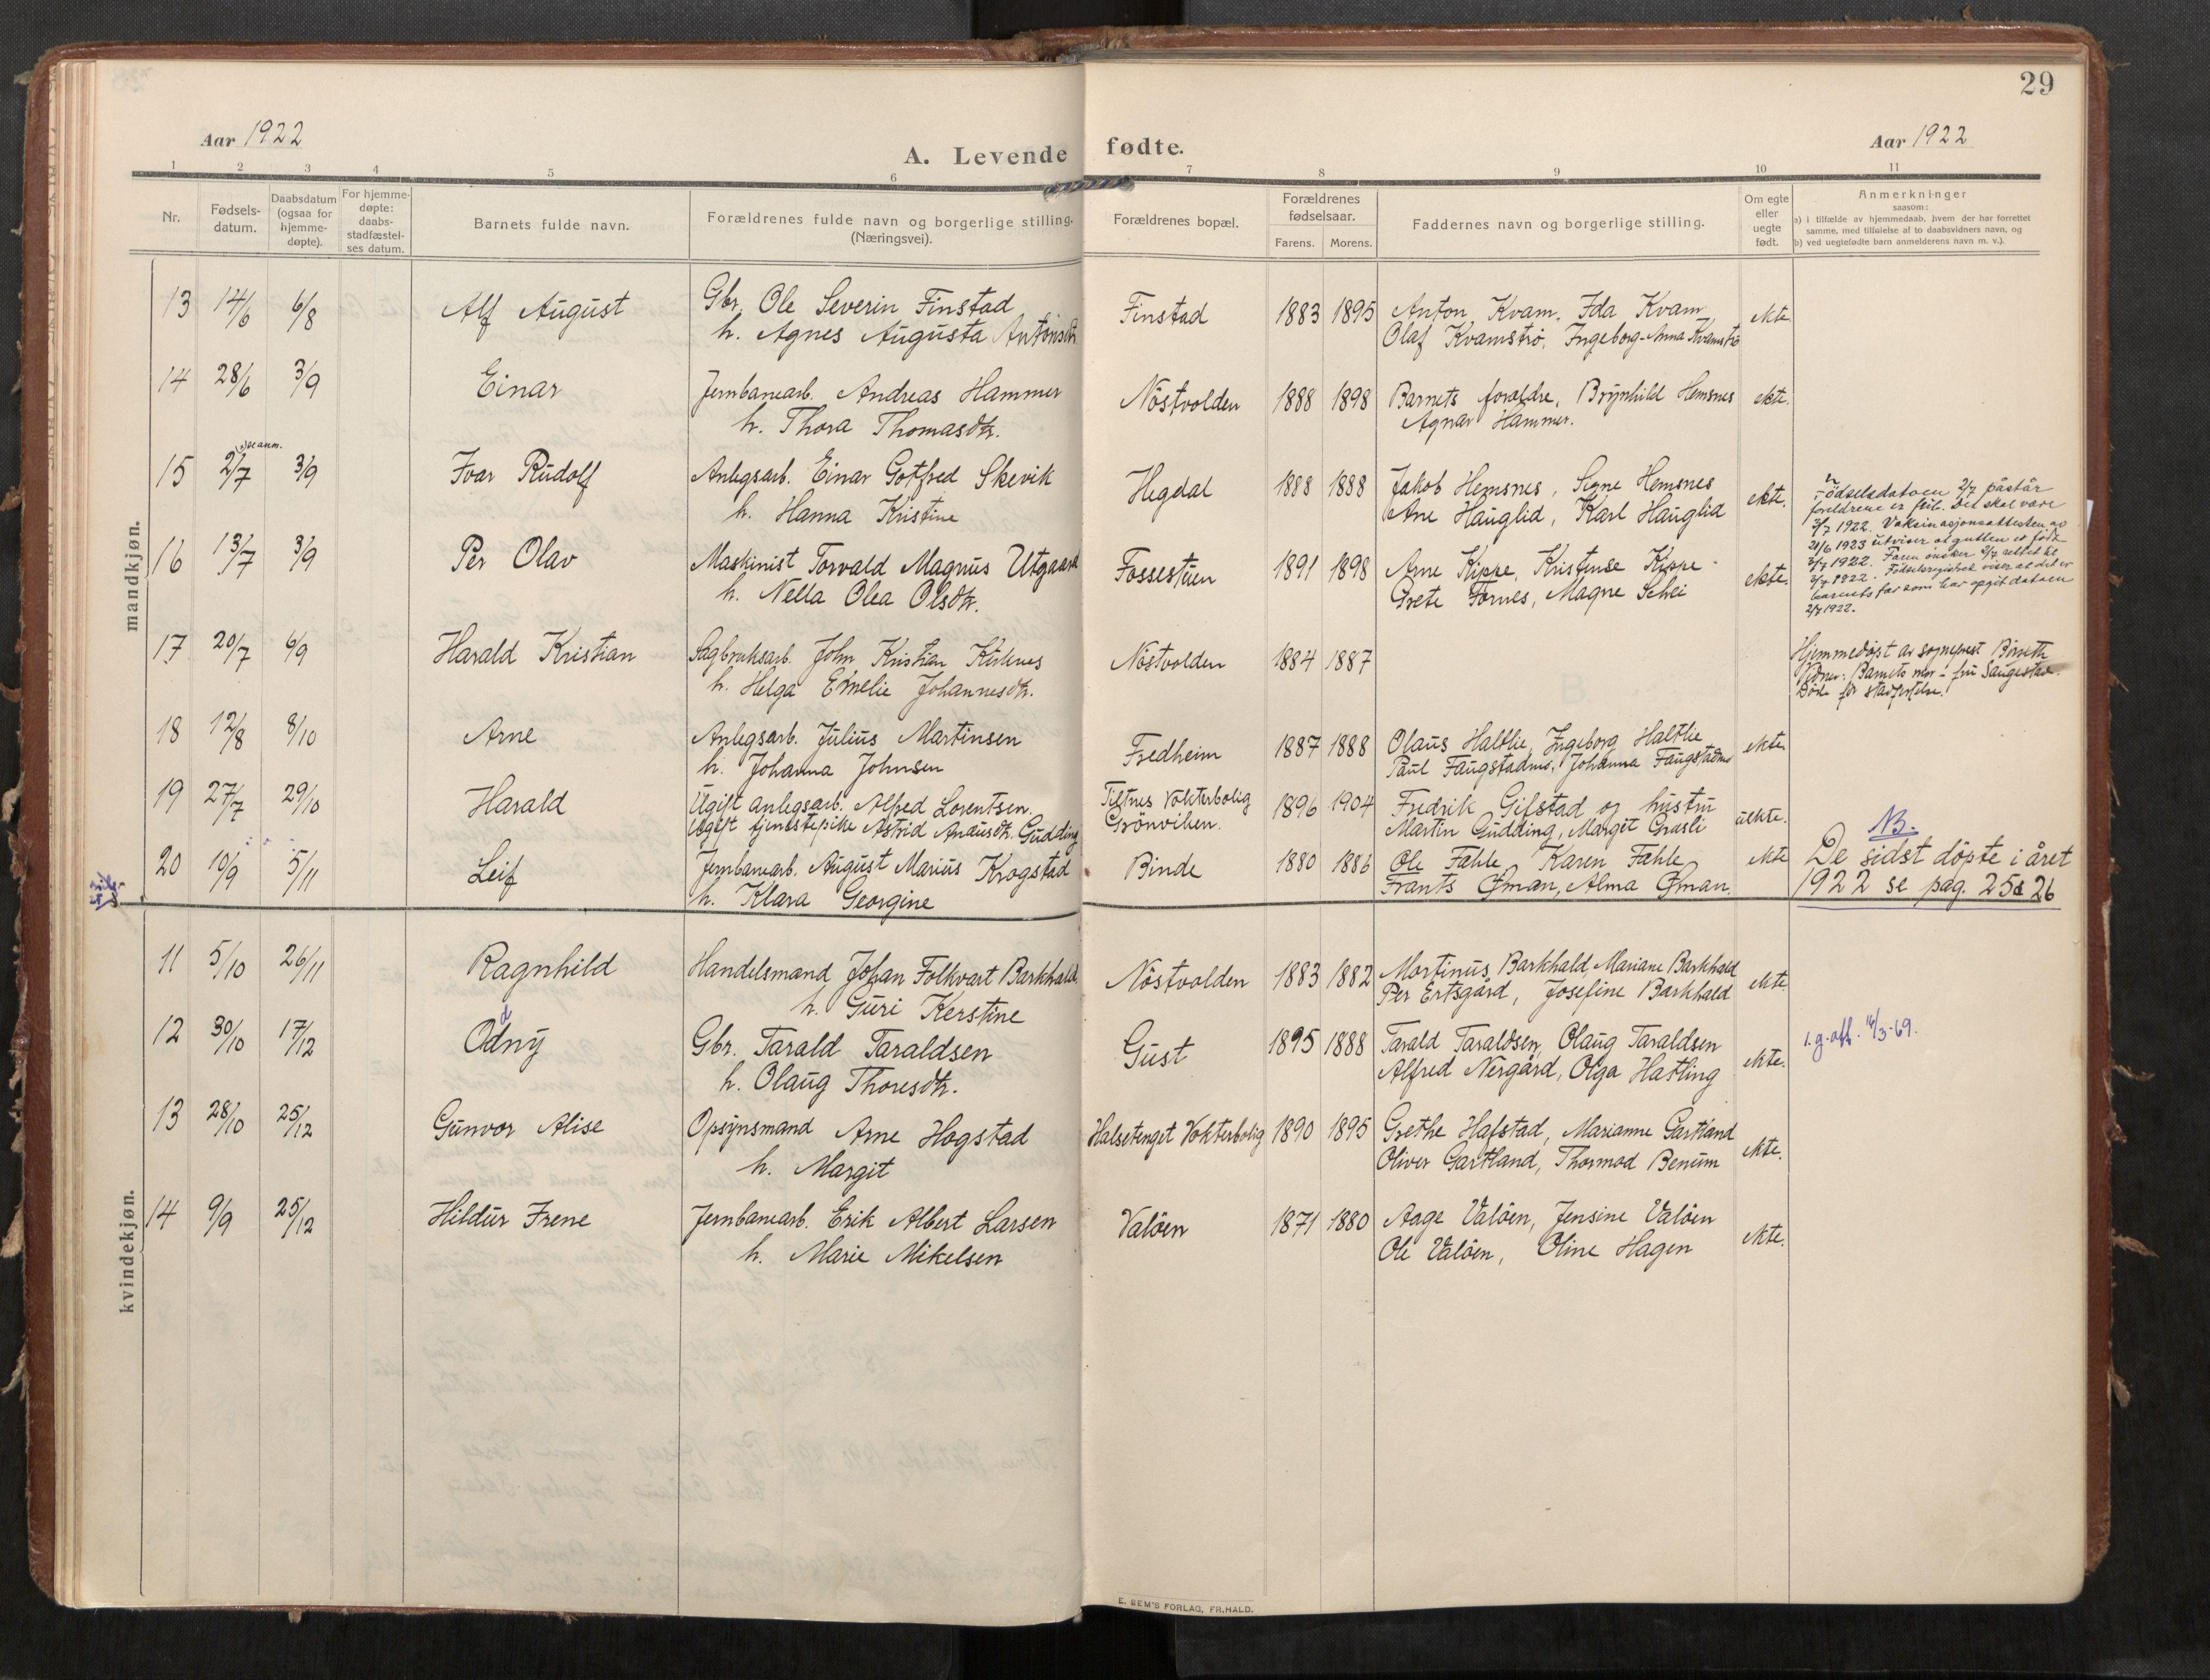 29
Aar 1922
A. Levende fødte.
Aar 1922
1 2 3 4 5 6 7 8 9 10 11
Nr.
Fødsels-
datum.
Daabsdatum
(ogsaa for
hjemme-
døpte).
For hjemme-
døpte:
daabs-
stadfæstel-
ses datum.
Barnets fulde navn.
Forældrenes fulde navn og borgerlige stilling.
(Næringsvei).
Forældrenes bopæl.
Forældrenes
fødselsaar.
Farens. Morens.
Faddernes navn og borgerlige stilling.
Om egte
eller
uegte
født.
Anmerkninger
saasom:
a) i tilfælde av hjemmedaab, hvem der har forrettet
samme, med tilføielse af to daabsvidners navn, og
b) ved uegtefødte barn anmelderens navn m. v.).
mandkjøn.
13 14/6 6/8 Alf August Gbr. Ole Severin Finstad Finstad 1883 1895 Anton Kvam, Ida Kvam, ekte.
h. Agnes Augusta Antonsdtr. Olaf Kvamstrø, Ingeborg-Anna Kvamstrø
14 28/6 3/9 Einar Jernbanearb. Andreas Hammer Nöstvolden 1888 1898 Barnets forældre, Brynhild Hemsnes ekte.
h. Thora Thomasdtr. Agnar Hammer.
se anm.
15 2/7 3/9 Ivar Rudolf Anlegsarb. Einar Gotfred Skevik Hegdal 1888 1888 Jakob Hemsnes, Signe Hemsnes ekte.
h. Hanna Kristine Arne Hauglid, Karl Hauglid
Fødselsdatoen 2/7 påstår
foreldrene er feil. Det skal være
3/7 1922. Vaksinasjonsattesten av
21/6 1923 utviser at gutten er født
3/7 1922. Faren ønsker 2/7 rettet til
3/7 1922. Fødselsregistret viser at det er
barnets far som har opgit datoen
2/7 1922.
16 13/7 3/9 Per Olav Maskinist Torvald Magnus Utgaard Fossestuen 1891 1898 Arne Kippe, Kristense Kippe ekte.
h. Nella Olea Olsdtr. Grete Fornes, Magne Schei
17 20/7 6/9 Harald Kristian Sagbruksarb. John Kristian Kirknes Nöstvolden 1884 1887
h. Helga Emelie Johannesdtr.
Hjemmedöpt av sogneprest
Vidner: Barnets mor - fru Saugestad.
Døde før stadfestelse.
18 12/8 8/10 Arne Anlegsarb. Julius Martinsen Fredheim 1887 1888 Olaus Haltlie, Ingeborg Haltlie ekte.
h. Johanna Johnsen Paul Faugstadmo, Johanna Faugstadmo
19 27/7 29/10 Harald Ugift anlegsarb. Alfred Lorentsen. Tiltnes Vokterbolig 1896 1904 Fredrik Gifstad og hustru uekte.
Ugift tjenestepike Astrid Andersdtr. Gudding Grönviken. Martin Gudding, Margit Grasli
20 10/9 5/11 Leif Jernbanearb. August Marius Krogstad Binde 1880 1886 Ole Fahle, Karen Fahle, ekte
h. Klara Georgine Frants Öfman, Alma Öfman.
NB.
De sidst döpte i året
1922 se pag. 25 & 26
kvindekjøn.
11 5/10 26/11 Ragnhild Handelsmand Johan Folkvart Barkhald Nöstvolden 1883 1882 Martinus Barkhald, Mariane Barkhald ekte.
h. Guri Kerstine Per Ertsgård, Josefine Barkhald
12 30/10 17/12 Oddny Gbr. Tarald Taraldsen Gust 1895 1888 Tarald Taraldsen, Olaug Taraldsen ekte. 1.g.att. 14/3-69.
h. Olaug Thoresdtr. Alfred Nergård, Olga Hatling
13 28/10 25/12 Gunvor Alise Opsynsmand Arne Hogstad Halsetenget Vokterbolig 1890 1895 Grethe Hafstad, Marianne Gartland ekte.
h. Margit Oliver Gartland, Thormod Benum
14 9/9 25/12 Hildur Irene Jernbanearb. Erik Albert Larsen Valöen 1871 1880 Aage Valöen, Jensine Valöen ekte.
h. Marie Mikelsen Ole Valöen, Oline Hagen
E. SEM'S FORLAG, FR.HALD.